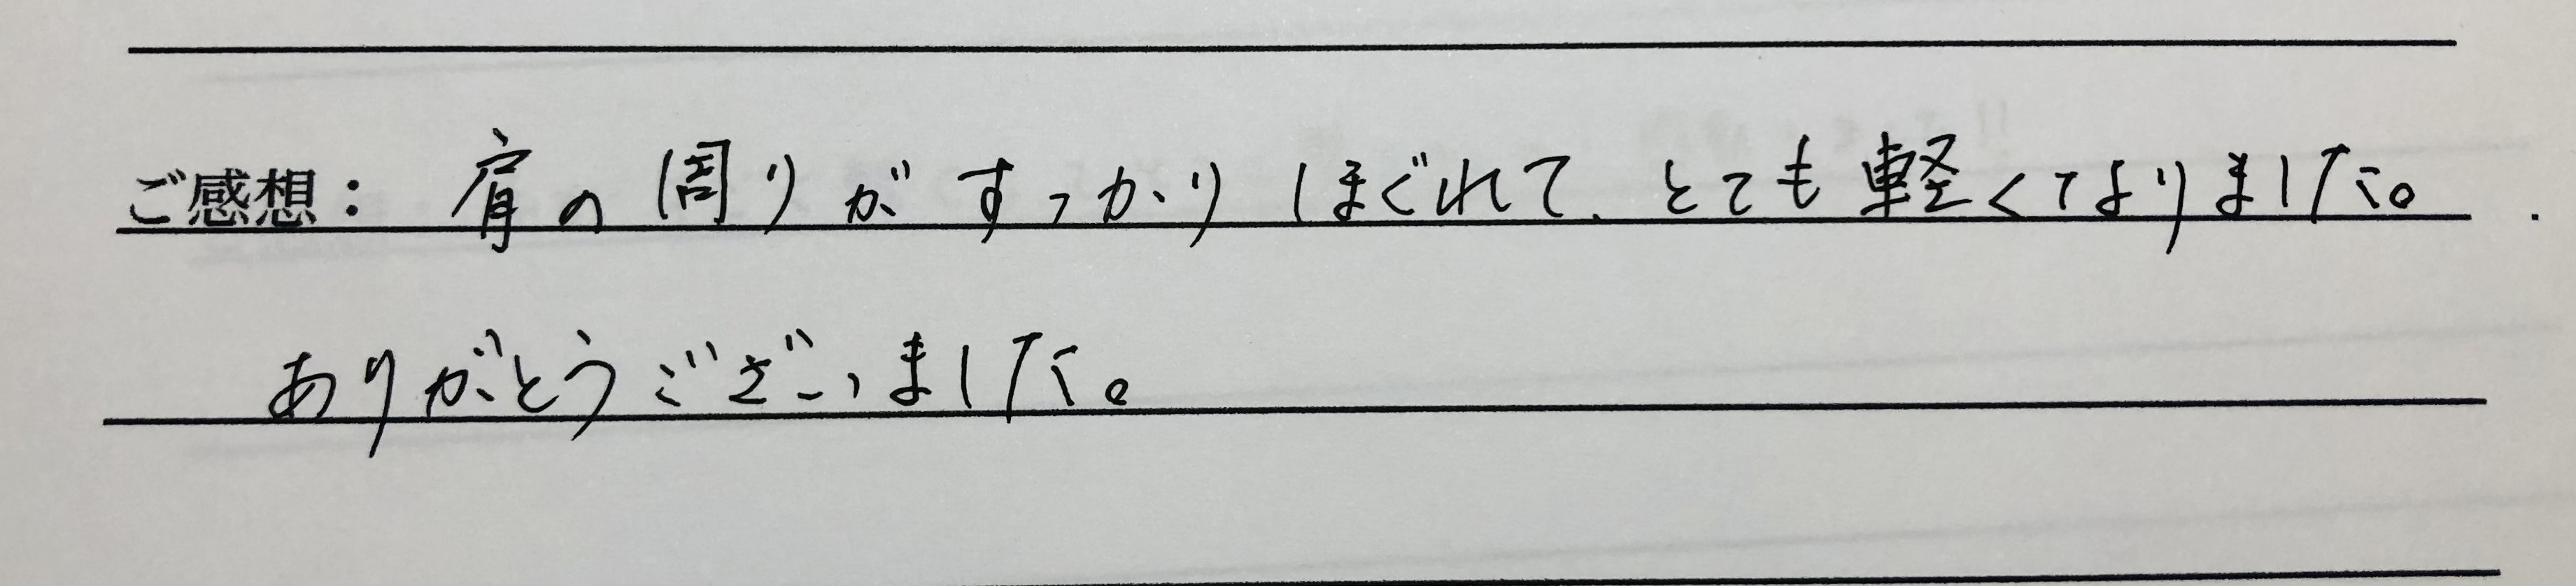 ご感想：肩の周りがすっかりほぐれて、とても軽くてよりました。
ありがとうございました。